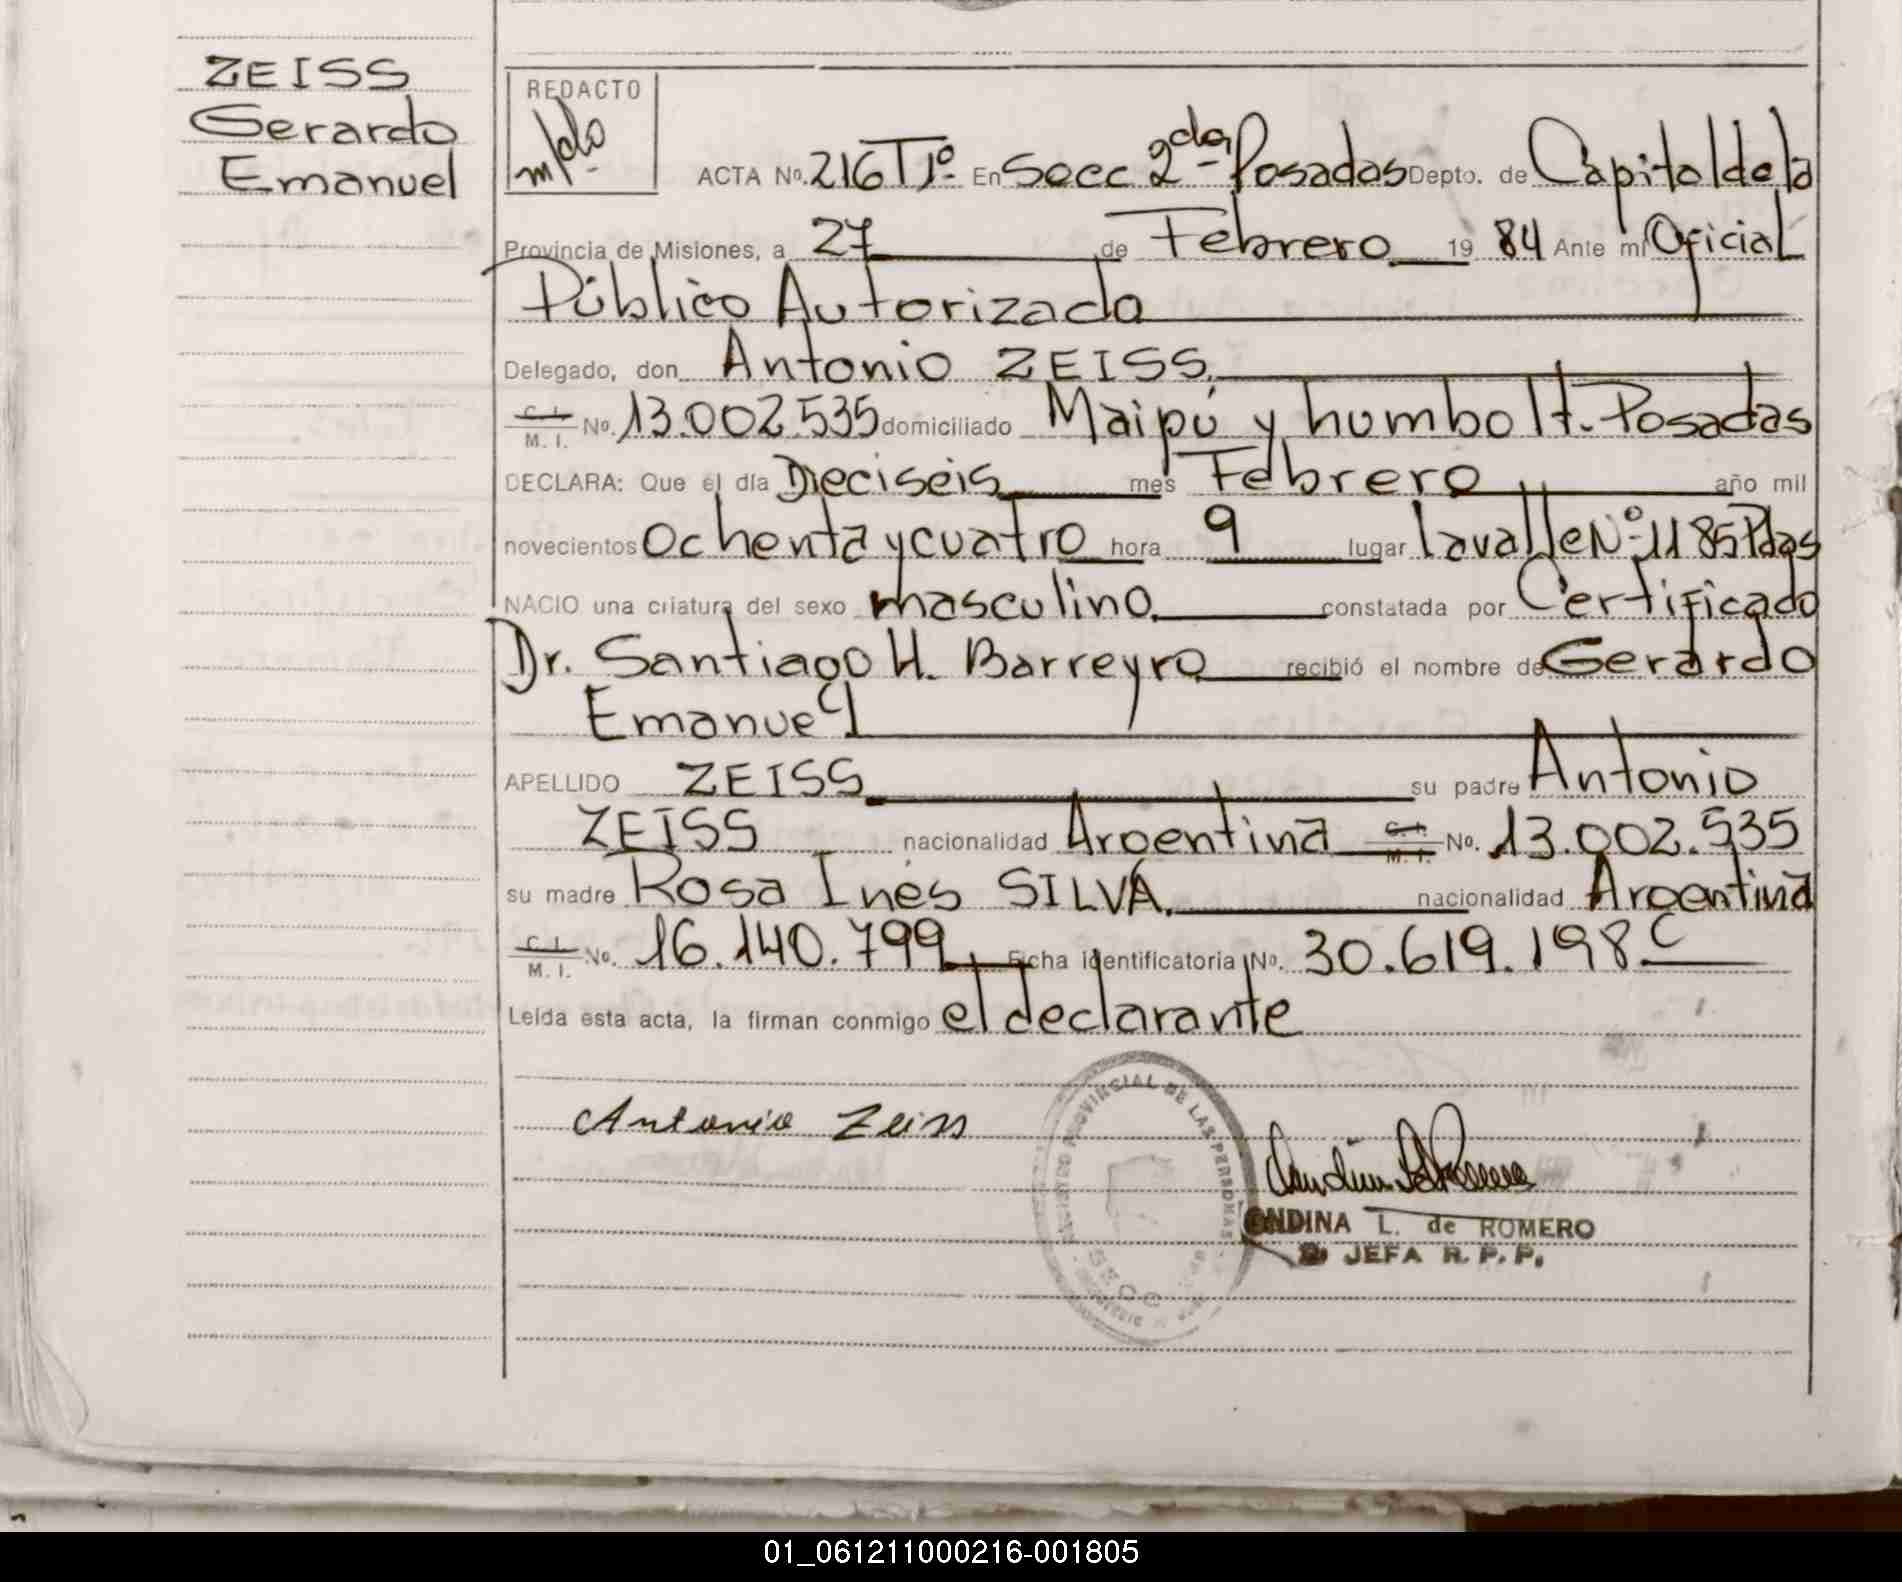 ZEISS
Gerardo
Emanuel
REDACTO
ACTA No. 216 Tº1º En Secc 2da Posadas Depto. de Capital de la
Provincia de Misiones, a 27 de Febrero 19 84 Ante mi Oficial
Público Autorizado
Delegado, don Antonio ZEISS.
C. I. M. I. No. 13.002.535 domiciliado Maipú y humbolt. Posadas
DECLARA: Que el día Dieciseis mes Febrero año mil
novecientos ochenta y cuatro hora 9 lugar lavalle Nº 1185 Pdas
NACIO una criatura del sexo masculino. constatada por Certificado
Dr. Santiago H. Barreyro recibió el nombre de Gerardo
Emanuel
APELLIDO ZEISS su padre Antonio
ZEISS nacionalidad Argentina C. I. M. I. No. 13.002.535
su madre Rosa Inés SILVA. nacionalidad Argentina
C. I. M. I. No. 16.140.799 Ficha identificatoria No. 30.619.198 C
Leída esta acta, la firman conmigo el declarante
Antonio Zeiss
PROVINCIAL DE LAS PERSONAS
SECC
L. de ROMERO
JEFA R. P. P.
01_061211000216-001805